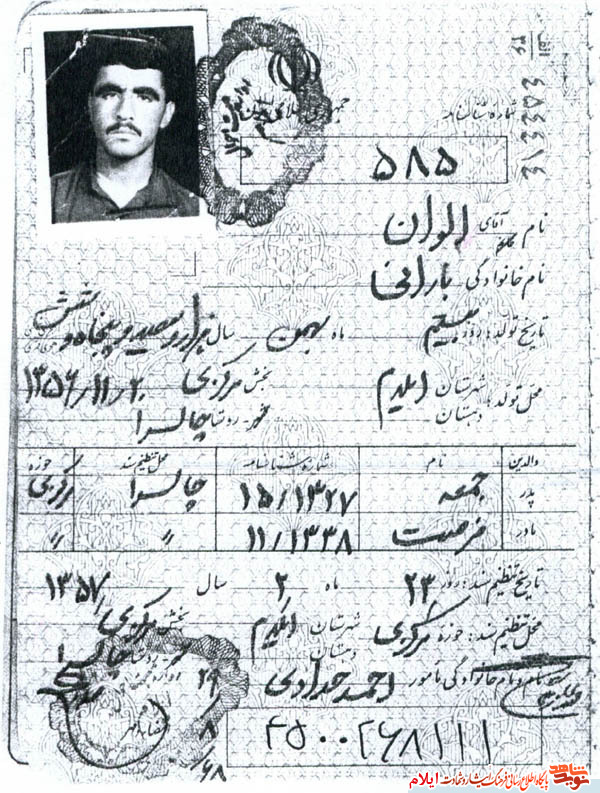 شماره شناسنامه
۵۸۵
نام آقای الوان
نام خانوادگی بارانی
تاریخ تولد: روز بیستم ماه بهمن سال هزار و سیصد و پنجاه و شش
۱۳۵۶/۱۱/۲۰
محل تولد: شهرستان ایلام بخش مرکزی
دهستان روستا چالسرا
والدین نام شماره شناسنامه محل تنظیم سند حوزه
پدر جمعه ۱۵/۱۳۲۷ چالسرا مرکزی
مادر فرصت ۱۱/۱۳۳۸ // //
تاریخ تنظیم سند: روز ۲۳ ماه ۲ سال ۱۳۵۷
محل تنظیم سند: حوزه مرکزی شهرستان ایلام بخش مرکزی
دهستان
نام و نام خانوادگی مأمور احمد حدادی
۲۹/۸/۶۸
۴۵۰۰۲۶۸۱۱۱
نوید شاهد پایگاه اطلاع رسانی فرهنگ ایثار و شهادت ایلام